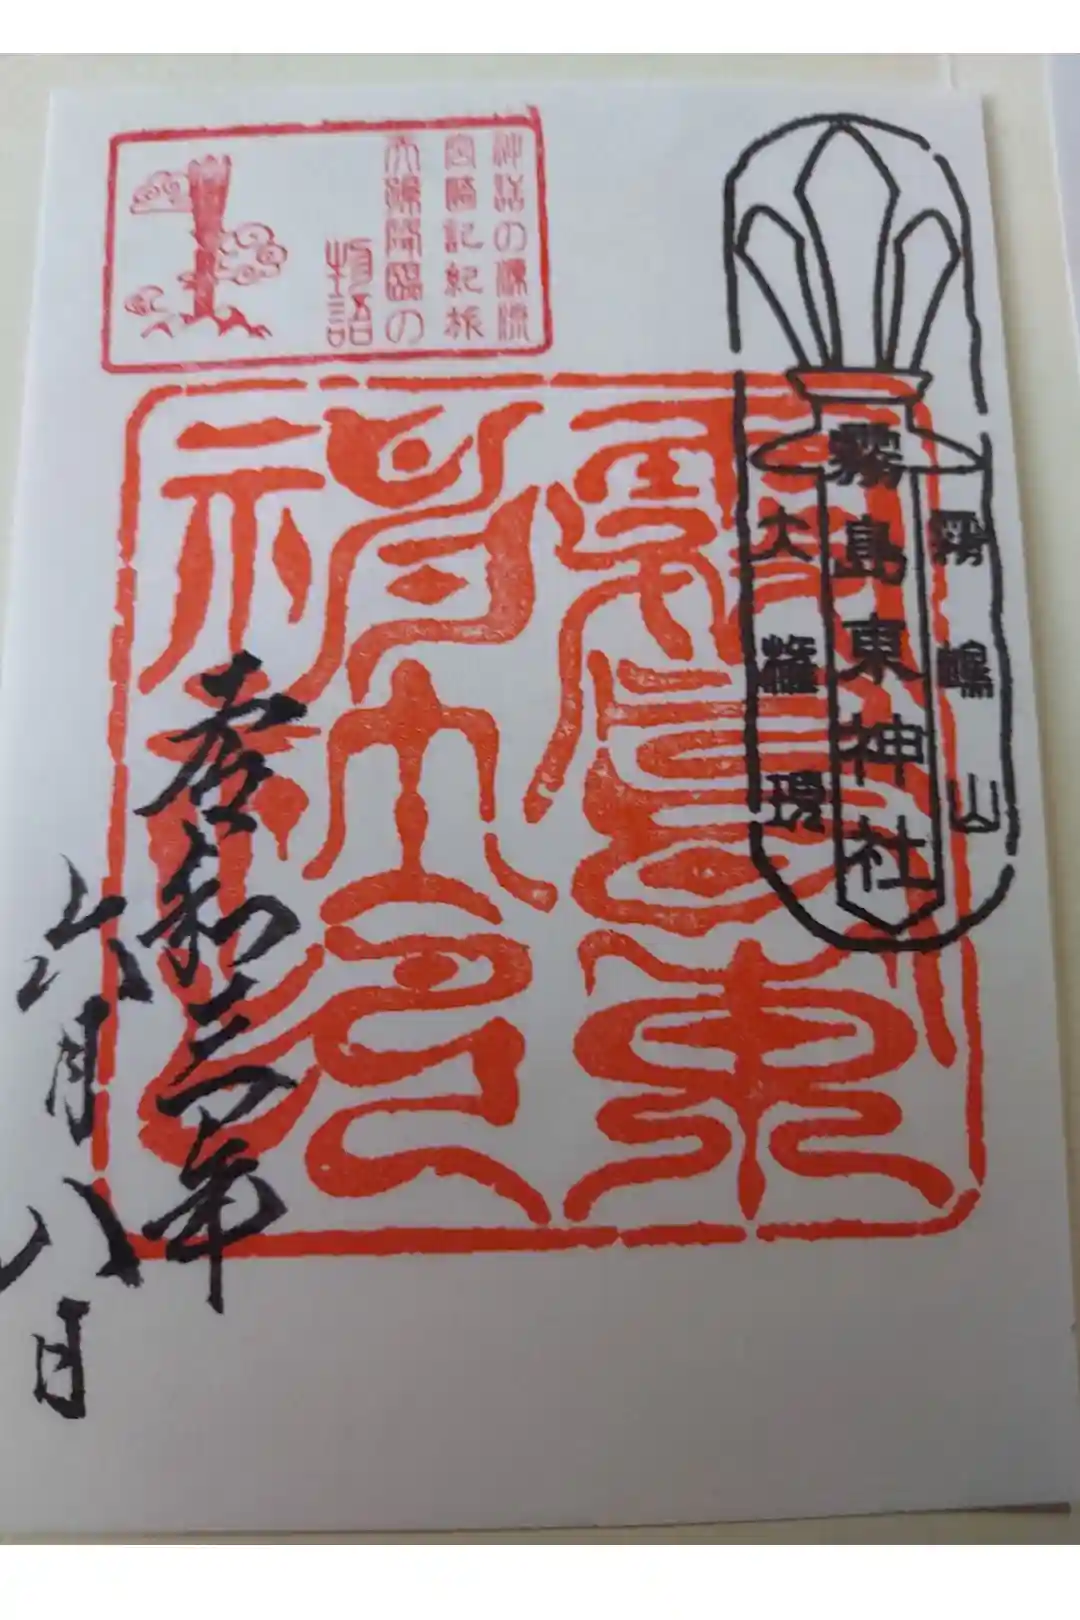 神話の源流
宮崎記紀旅
天孫降臨の
物語
霧嶋山
霧島東神社
大権現
令和三年
六月八日